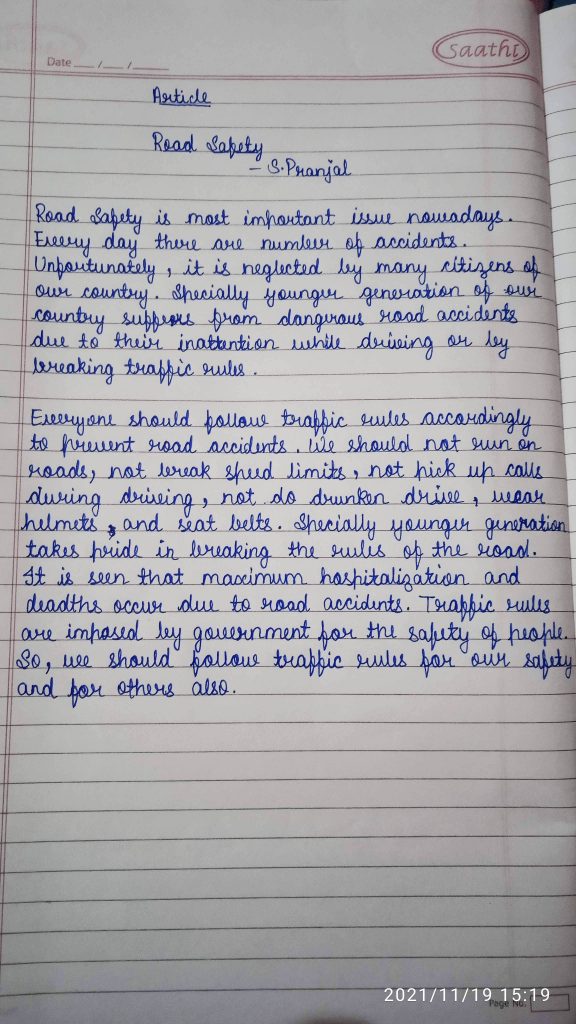 saathi
Date __/__/____
Article
Road Safety
- S.Pranjal
Road Safety is most important issue nowadays.
Every day there are number of accidents.
Unfortunately, it is neglected by many citizens of
our country. Specially younger generation of our
country suffers from dangerous road accidents
due to their inattention while driving or by
breaking traffic rules.
Everyone should follow traffic rules accordingly
to prevent road accidents. We should not run on
roads, not break speed limits, not pick up calls
during driving, not do drunken drive, wear
helmets, and seat belts. Specially younger generation
takes pride in breaking the rules of the road.
It is seen that maximum hospitalization and
deadths occur due to road accidents. Traffic rules
are imposed by government for the safety of people.
So, we should follow traffic rules for our safety
and for others also.
2021/11/19 15:19
Page No.